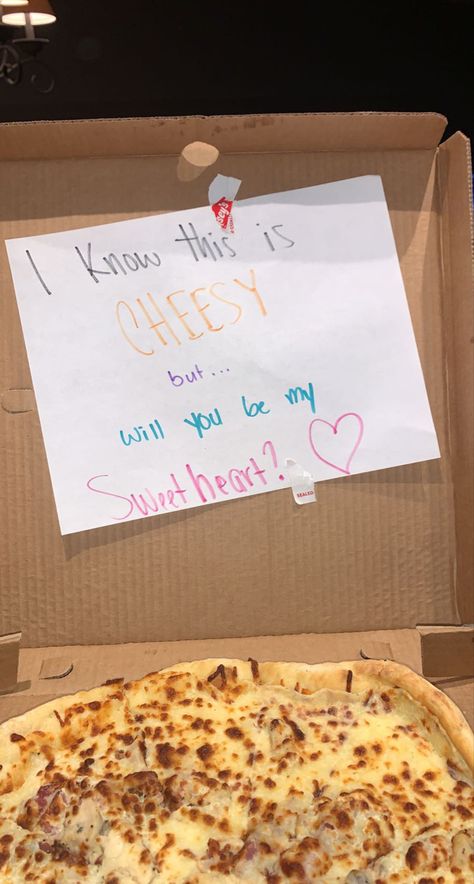 sey's
I Know this is
CHEESY
but...
will you be my
Sweetheart?
SEALED